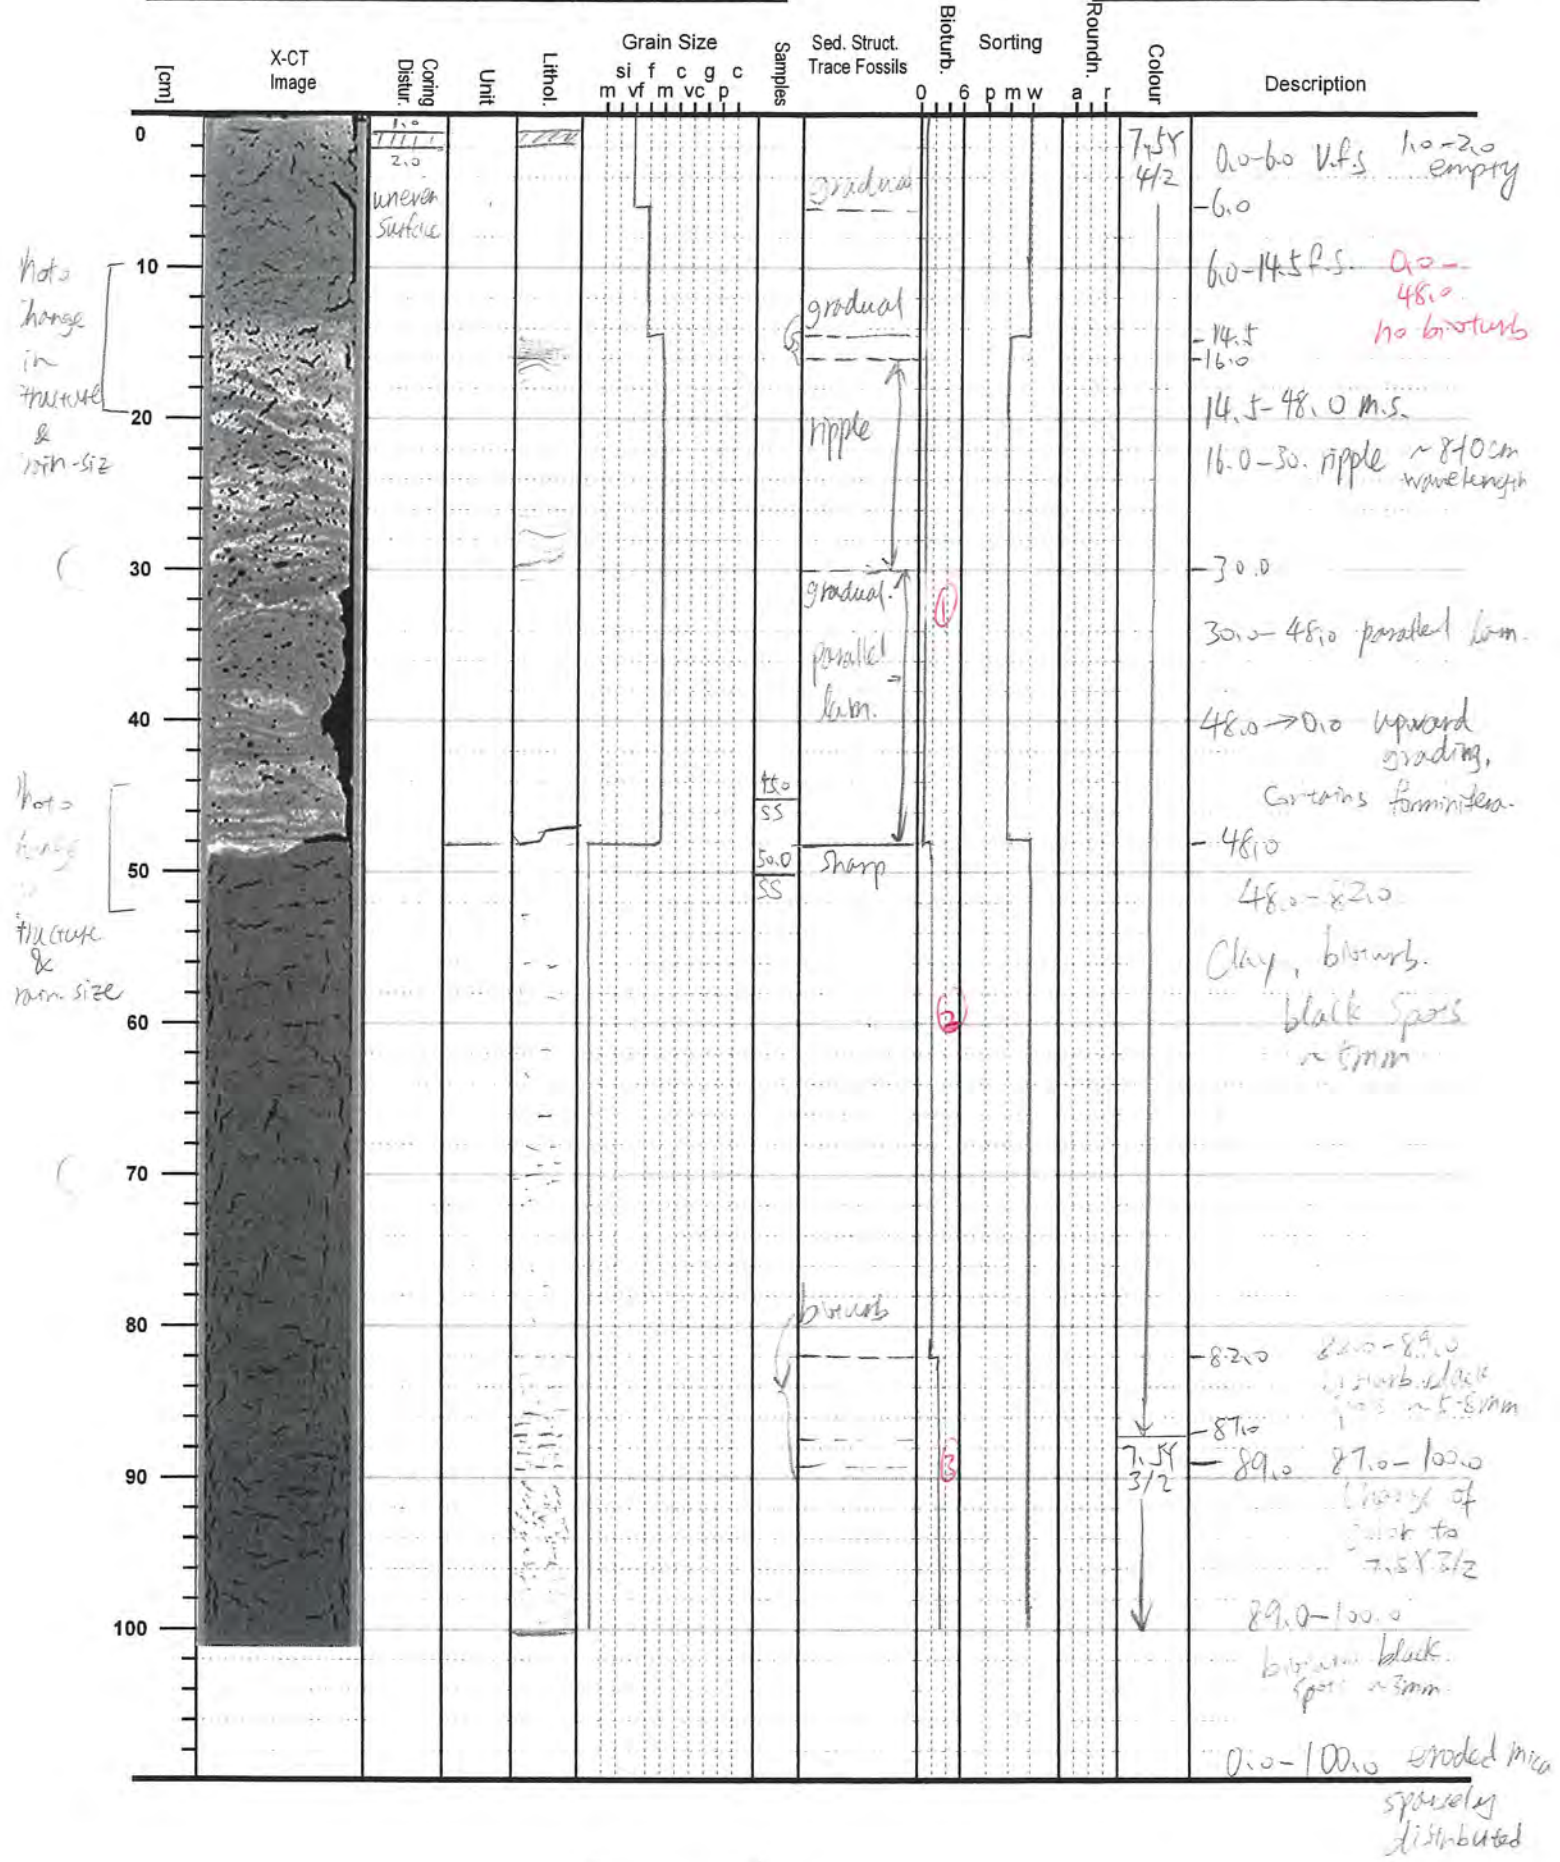 [cm]
X-CT
Image
Coring
Distur.
Unit
Lithol.
Grain Size
si f c g c
m vf m vc p
Samples
Sed. Struct.
Trace Fossils
Bioturb.
0 6
Sorting
p m w
Roundn.
a r
Colour
Description
0
10
20
30
40
50
60
70
80
90
100
1.0
2.0
uneven
surface
in
&
&
45.0
SS
50.0
SS
gradual
gradual
ripple
gradual.
parallel
lam.
sharp
bioturb
1
2
3
7.5Y
4/2
7.5Y
3/2
0.0-6.0 V.f.s
1.0-2.0
empty
-6.0
6.0-14.5 f.s.
0.0-
48.0
no bioturb
-14.5
-16.0
14.5-48.0 m.s.
16.0-30. ripple ~8-10cm
wavelength
-30.0
30.0-48.0 parallel lam.
48.0→0.0 upward
grading,
contains
-48.0
48.0-82.0
Clay, bioturb.
black spots
~5mm
-82.0
-87.0
-89.0
87.0-100.0
Change of
color to
7.5Y 3/2
89.0-100.0
black
spots ~3mm
0.0-100.0 eroded mica
sparsely
distributed